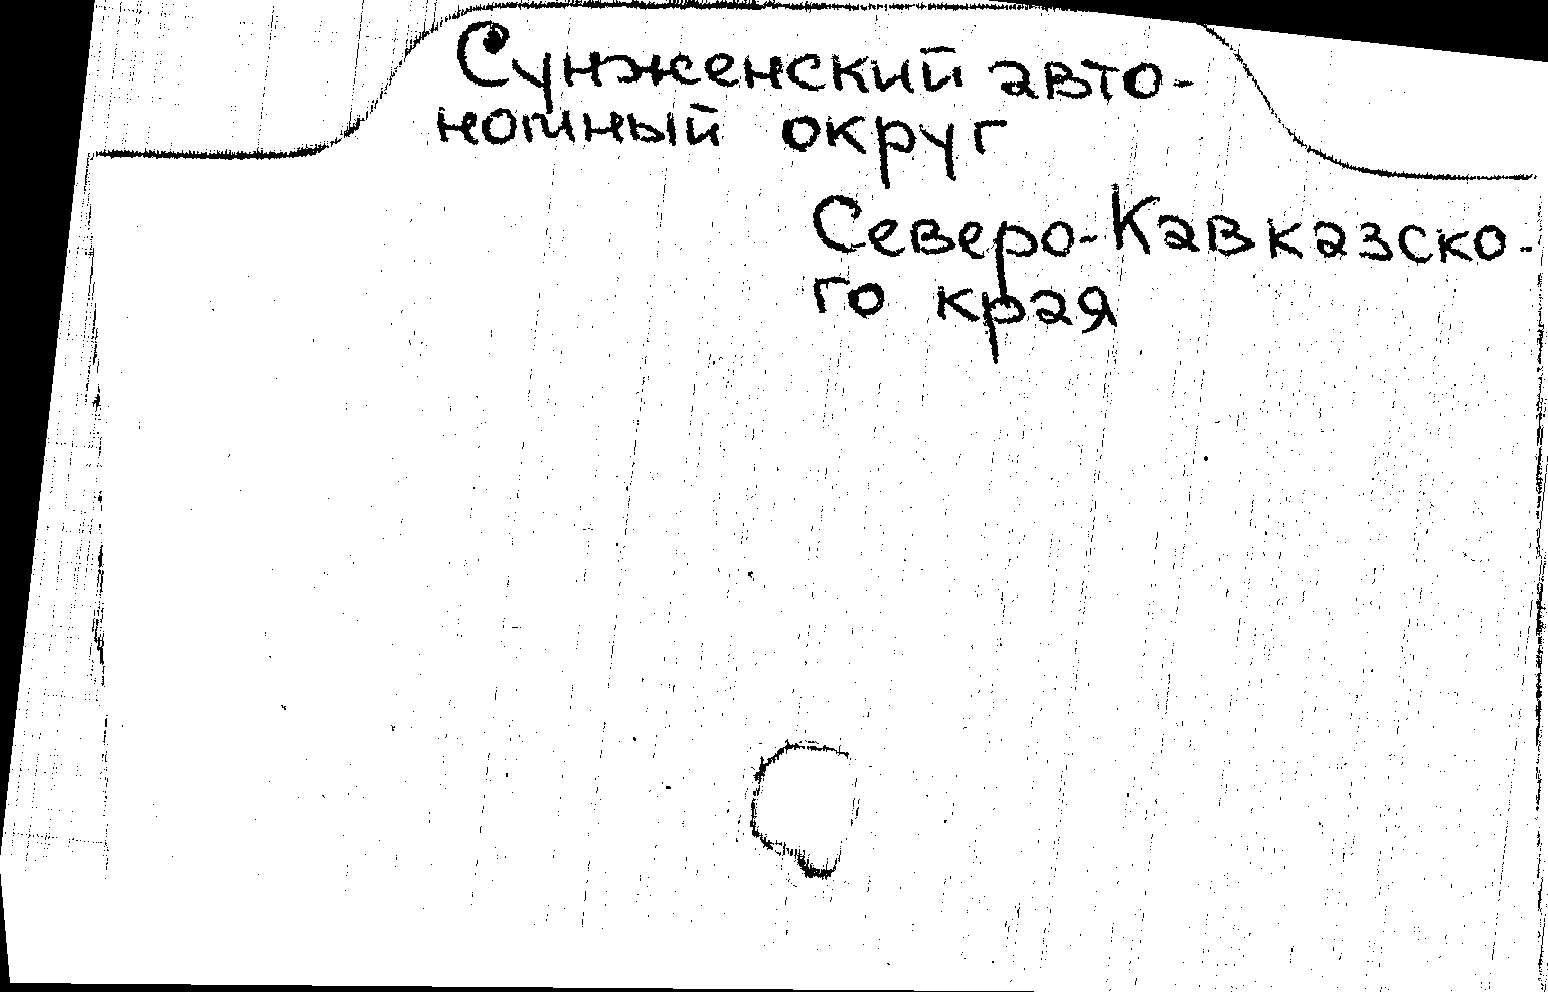 Сунженский авто-
номный округ
Северо-Кавказско-
го края